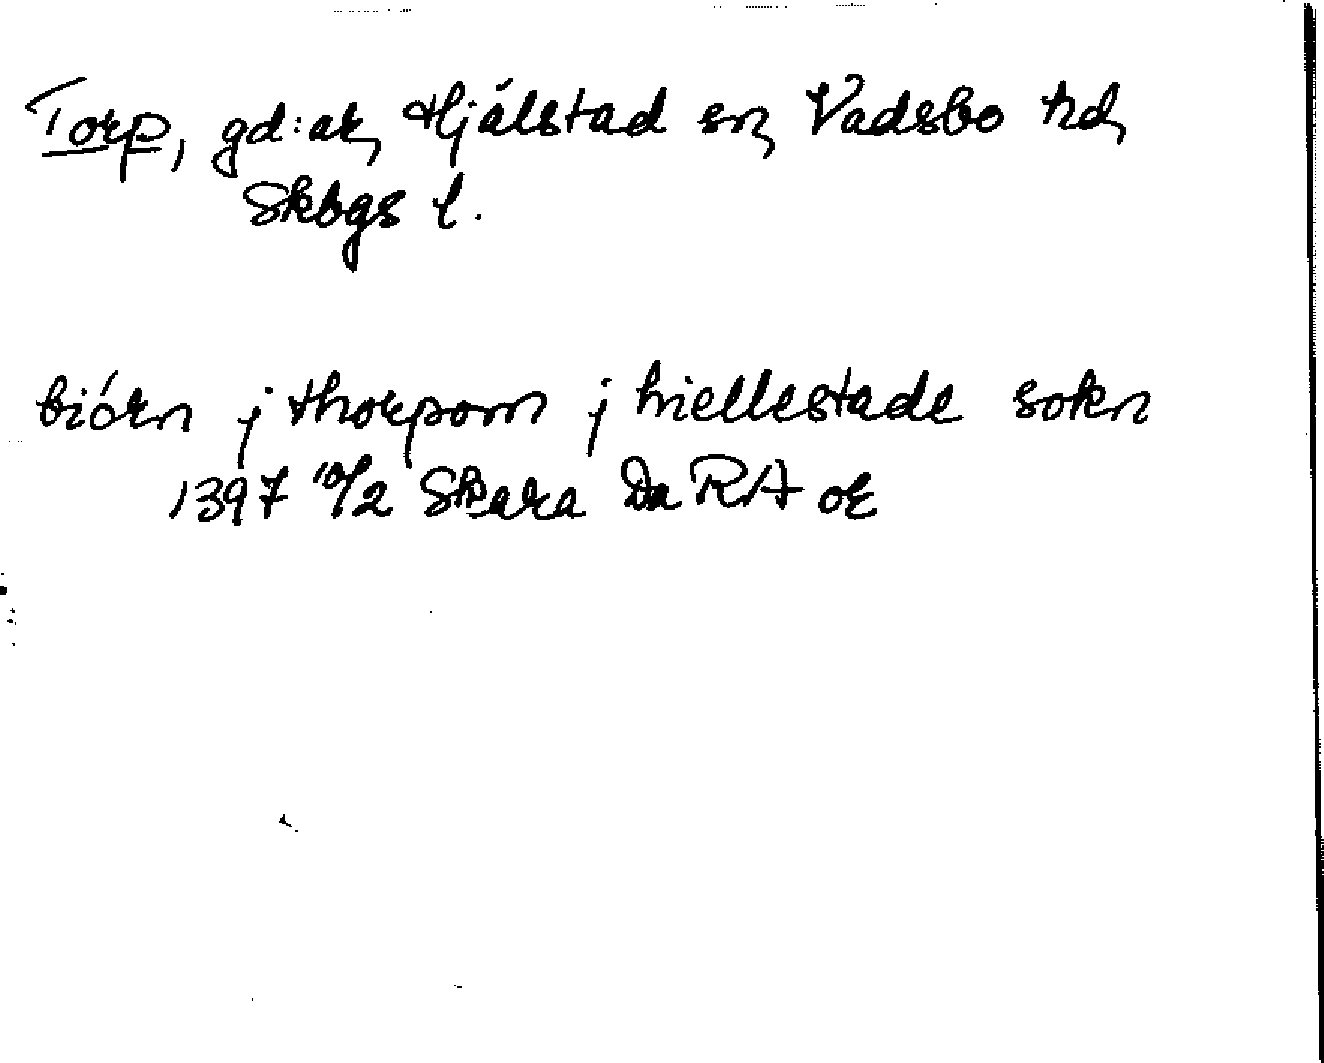 Torp, gd:ar, Hjälstad sn, Vadsbo hd,
Skogs l.
biórn j thorpom j hiellestade sokn
1397 10/2 Skara Da RA or